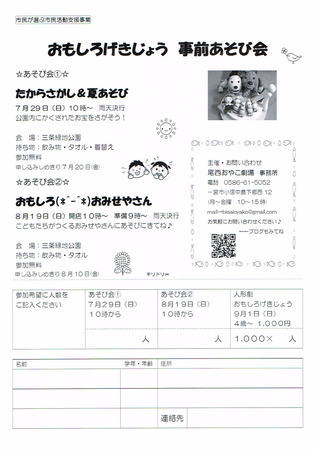 市民が選ぶ市民活動支援事業
おもしろげきじょう 事前あそび会
☆あそび会①☆
たからさがし＆夏あそび
7月29日（日）10時〜 雨天決行
公園内にかくされたお宝をさがそう！
会場：三条緑地公園
持ち物：飲み物・タオル・着替え
参加無料
申し込みしめきり7月20日（金）
☆あそび会②☆
おもしろ(*^-^*)おみせやさん
8月19日（日）開店10時〜 準備9時〜 雨天決行
こどもたちがつくるおみせやさんにあそびにきてね♪
会場：三条緑地公園
持ち物：飲み物・タオル
参加無料
申し込みしめきり8月10日（金）
主催・お問い合わせ
尾西おやこ劇場 事務所
電話 0586-61-5052
一宮市小信中島下郷西12
（月〜金曜 10〜15時）
mail=bisaioyako@gmail.com
お気軽にお問い合わせください♪
ーーブログもみてね
キリトリ
参加希望に人数をご記入ください
あそび会①
7月29日（日）
10時から
人
あそび会②
8月19日（日）
10時から
人
人形劇
おもしろげきじょう
9月1日（日）
4歳〜 1,000円
1,000× 人
名前 学年・年齢 住所
連絡先